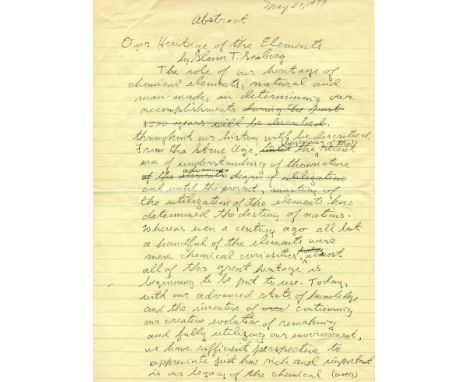 May 21, 1979
Abstract
Our Heritage of the Elements
by Glenn T. Seaborg
The role of our heritage of
chemical elements, natural and
man-made, in determining our
accomplishments during the past
3500 years will be described
throughout our history will be described.
From the Stone Age, the recent
era of understanding of their nature
of the elements advanced degree of utilization
and until the present, mastery of
the utilization of the elements has
determined the destiny of nations.
Whereas even a century ago all but
a handful of the elements were
mere chemical curiosities, today almost
all of this great heritage is
beginning to be put to use. Today,
with our advanced state of knowledge
and the incentive of continuing
our creative evolution of remaking
and fully utilizing our environment,
we have sufficient perspective to
appreciate just how rich and important
is our legacy of the chemical (over)